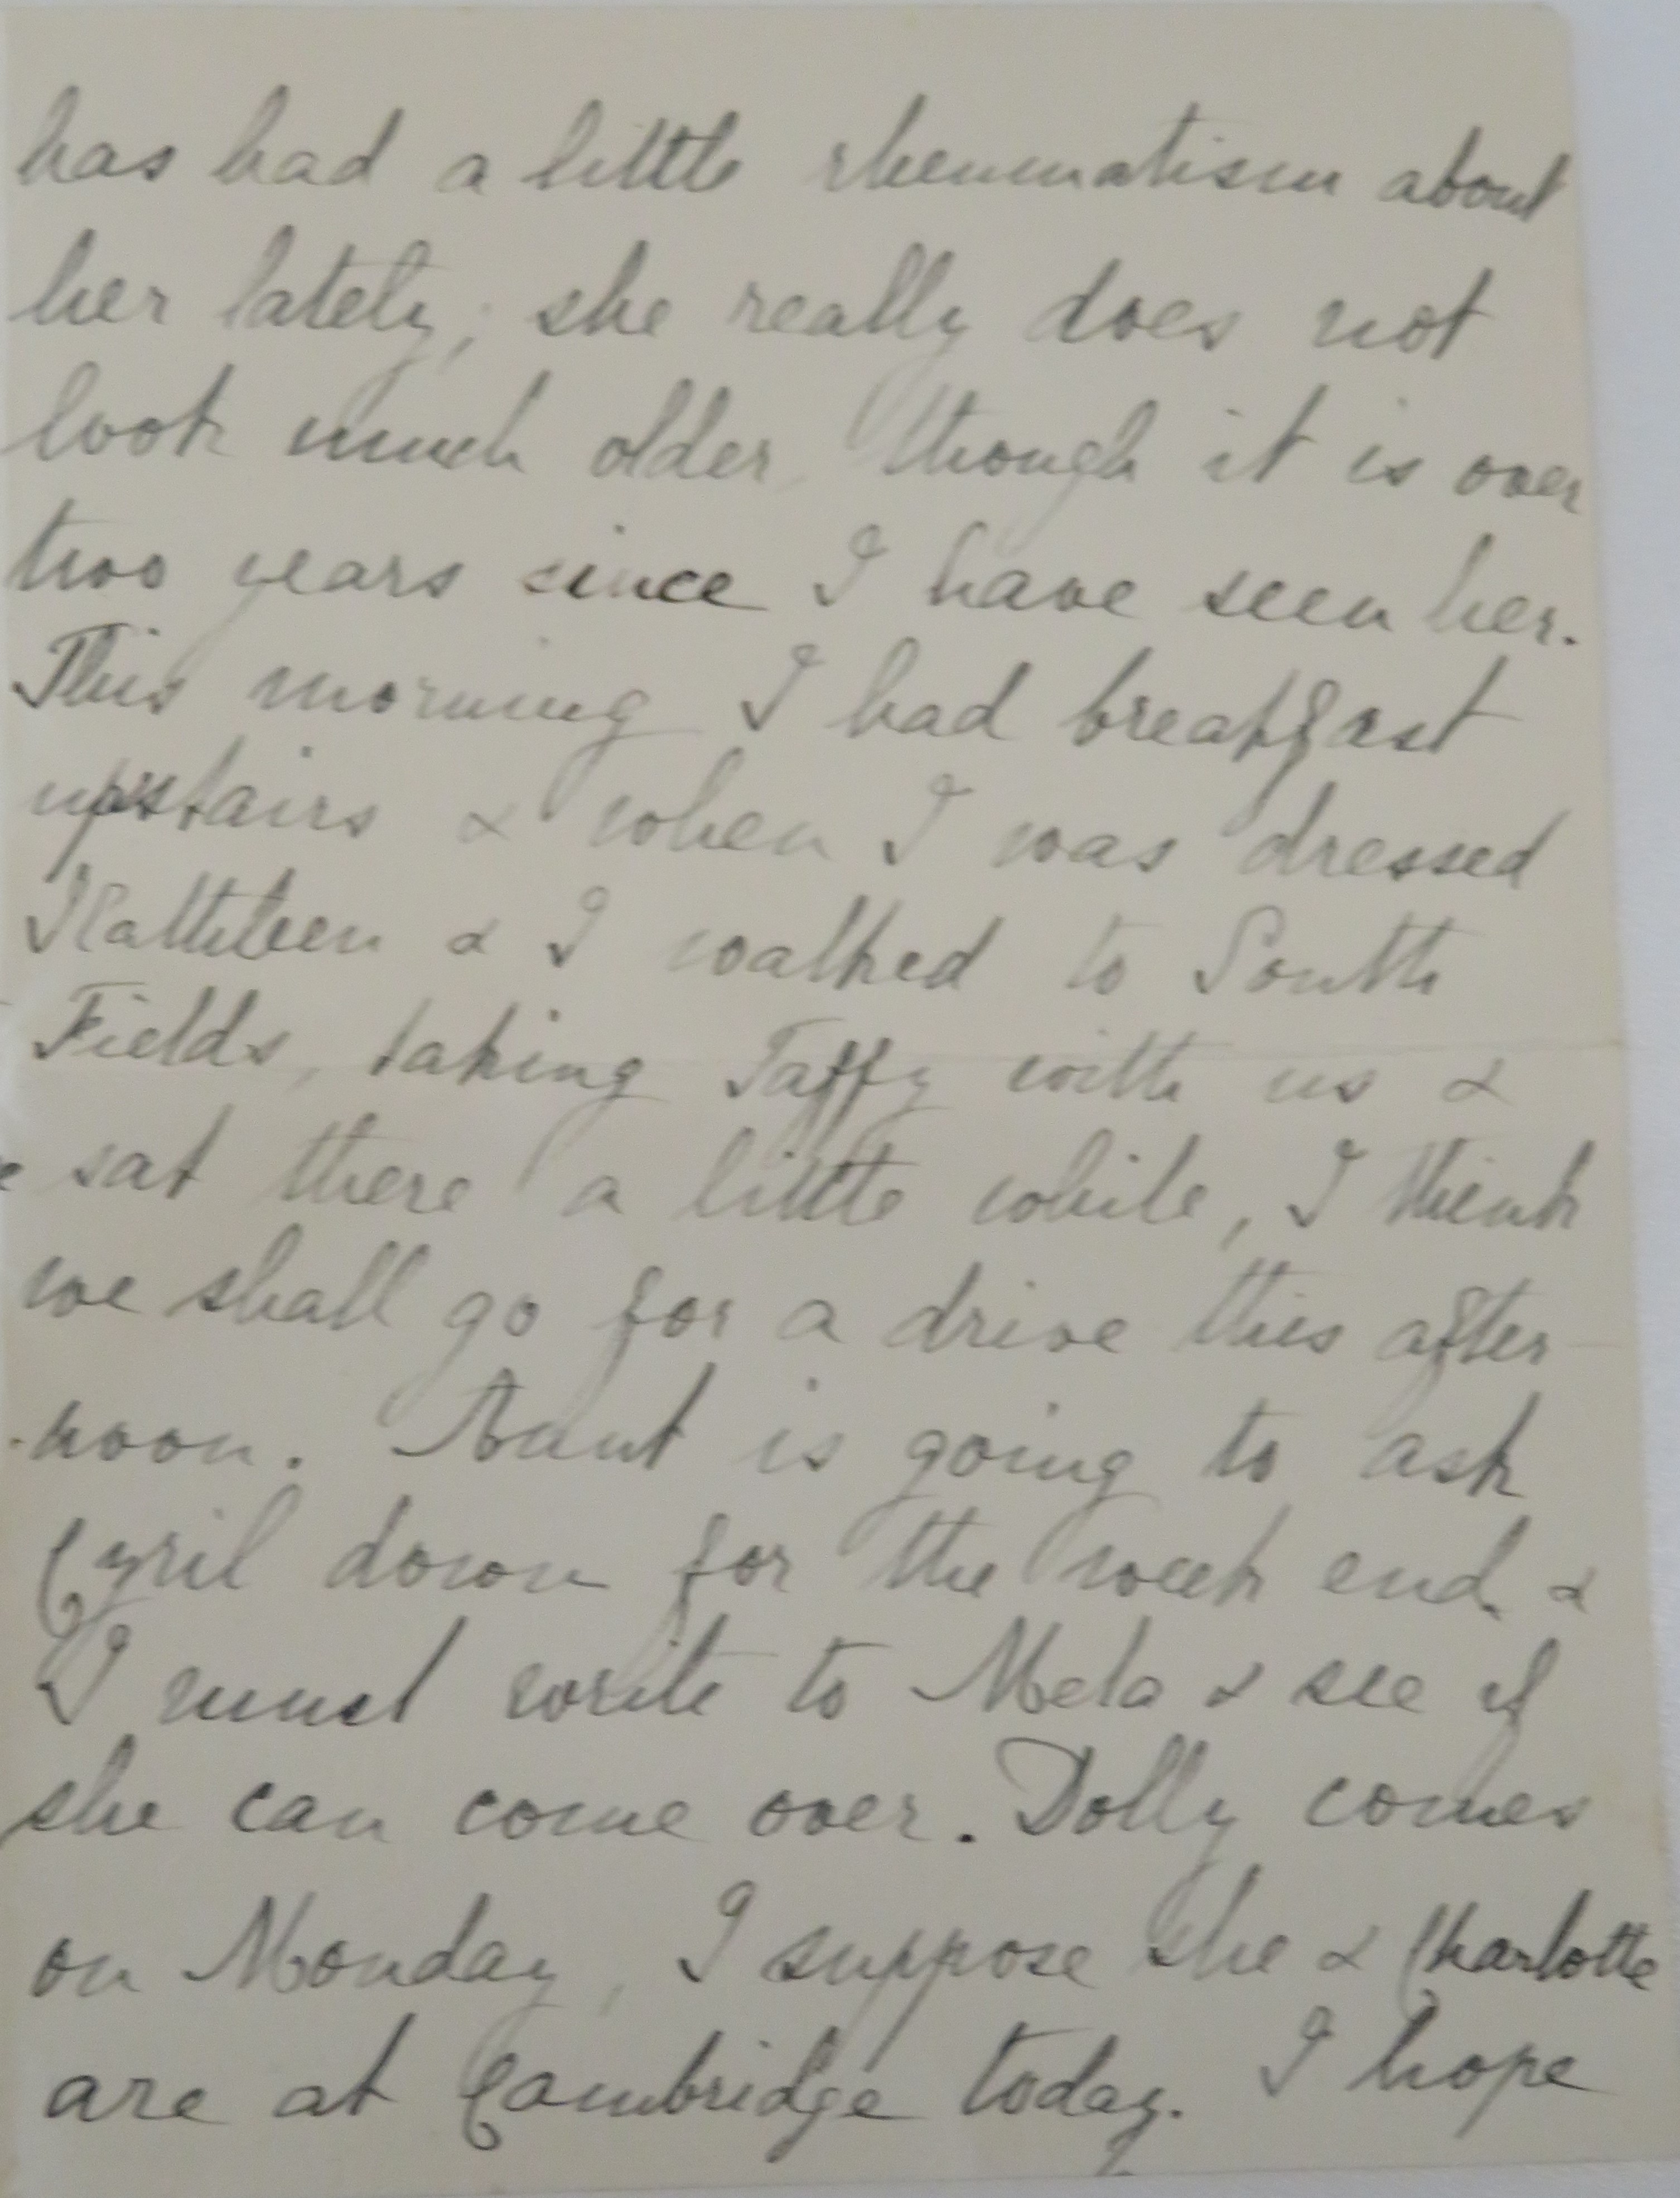 has had a little rheumatism about
her lately; she really does not
look much older, though it is over
two years since I have seen her.
This morning I had breakfast
upstairs & when I was dressed
Kathleen & I walked to South
Fields, taking Taffy with us &
sat there a little while, I think
we shall go for a drive this after-
noon. Aunt is going to ask
Cyril down for the week end &
I must write to Mela & see if
she can come over. Dolly comes
on Monday, I suppose she & Charlotte
are at Cambridge today. I hope